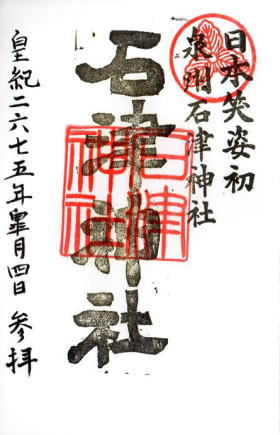 日本笑姿初
泉州石津神社
石津神社
石津神社
皇紀二六七五年皐月四日 参拝